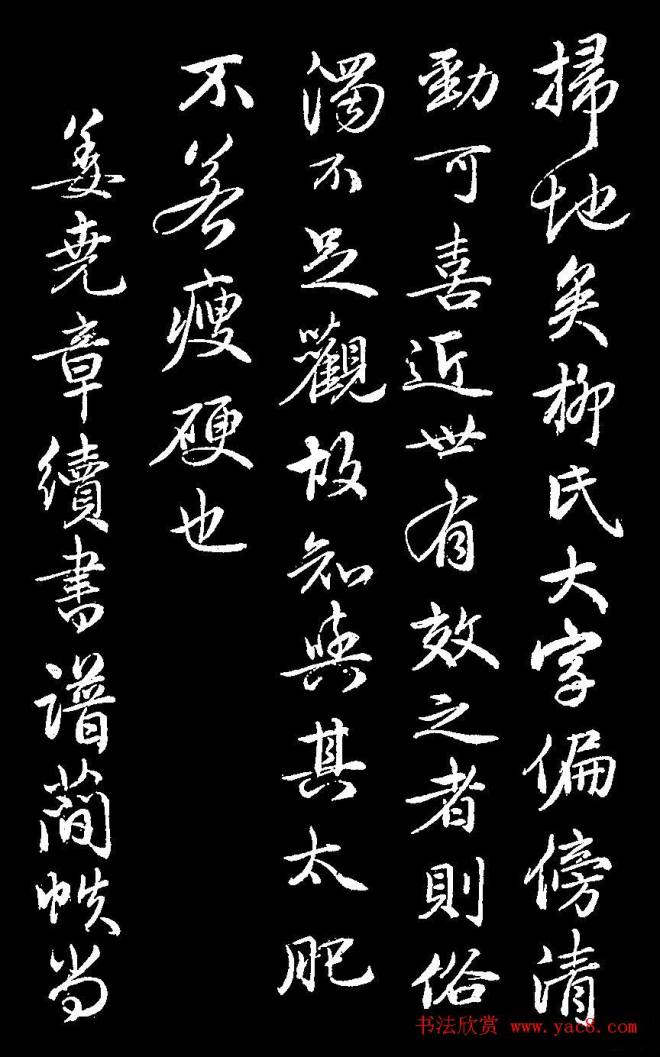 掃地矣柳氏大字偏傍清
勁可喜近世有效之者則俗
濁不足觀故知與其太肥
不若瘦硬也
姜堯章續書譜蕳帙尚
书法欣赏 www.yac8.com